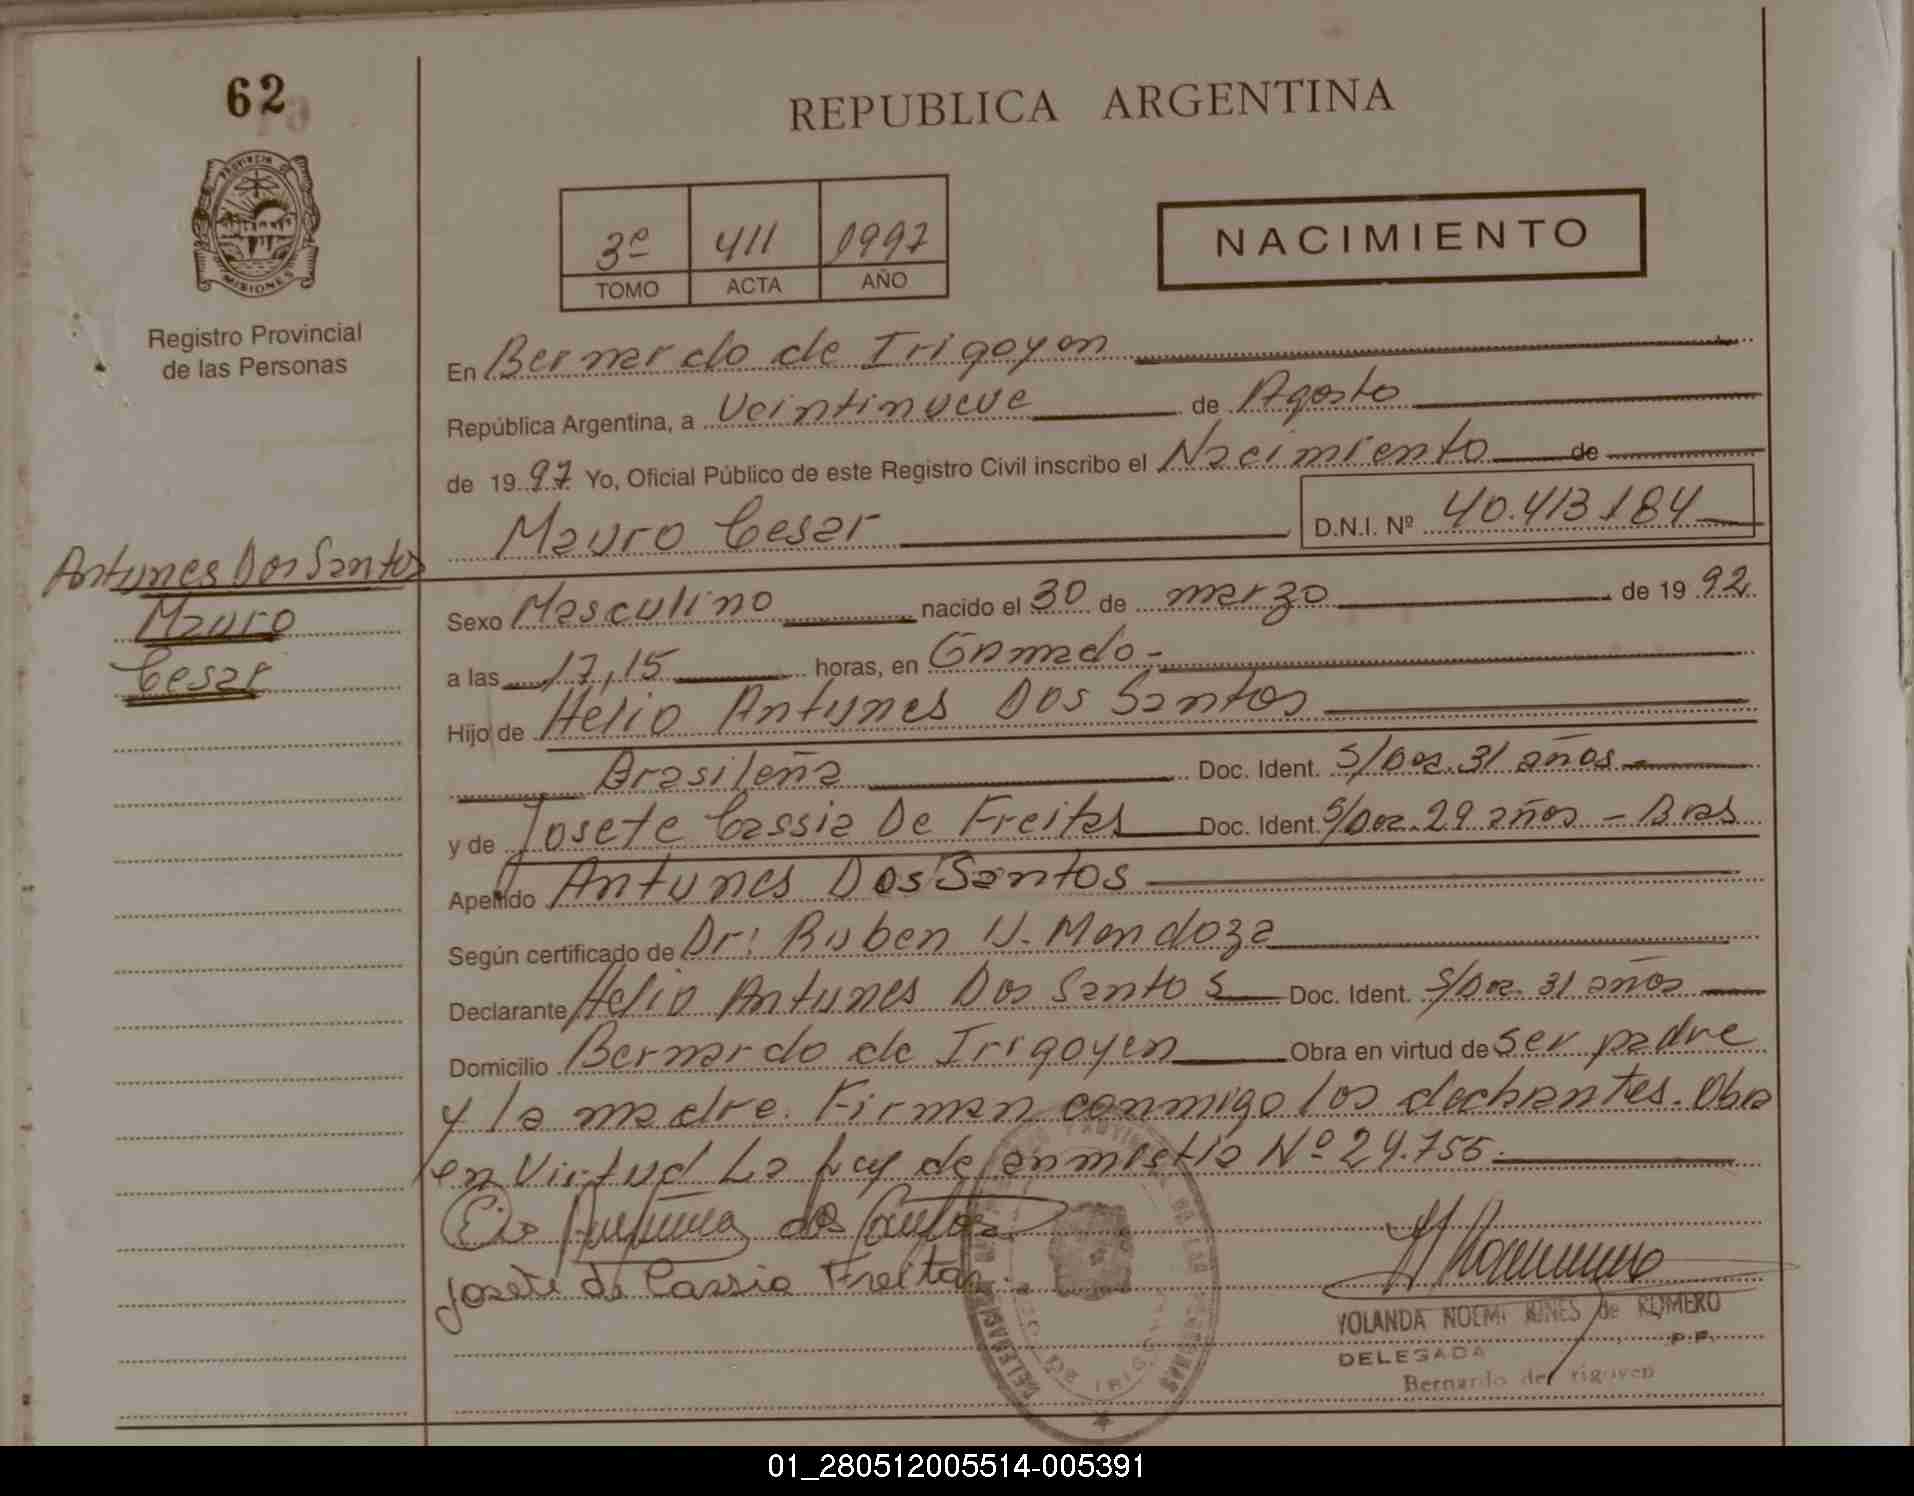 62
REPUBLICA ARGENTINA
PROVINCIA DE
MISIONES
Registro Provincial
de las Personas
3º 411 1997
TOMO ACTA AÑO
NACIMIENTO
En Bernardo de Irigoyen
República Argentina, a Veintinueve de Agosto
de 1997 Yo, Oficial Público de este Registro Civil inscribo el Nacimiento de
Mauro Cesar D.N.I. Nº 40.413.184
Antunes Dos Santos
Mauro
Cesar
Sexo Masculino nacido el 30 de marzo de 1992
a las 17,15 horas, en Gramado-
Hijo de Helio Antunes Dos Santos
Brasileña Doc. Ident. S/Doc. 31 años
y de Josete Cassia De Freitas Doc. Ident. S/Doc. 29 años - Bras
Apellido Antunes Dos Santos
Según certificado de Dr: Ruben V. Mendoza
Declarante Helio Antunes Dos Santos Doc. Ident. S/Doc. 31 años
Domicilio Bernardo de Irigoyen Obra en virtud de ser padre
y la madre. Firman conmigo los declarantes. Obra
en Virtud La Ley de anmistia Nº 24.755.
dos Santos
Josete de Cassia Freitas
YOLANDA NOEMI de ROMERO
DELEGADA P.F.
Bernardo de Irigoyen
01_280512005514-005391